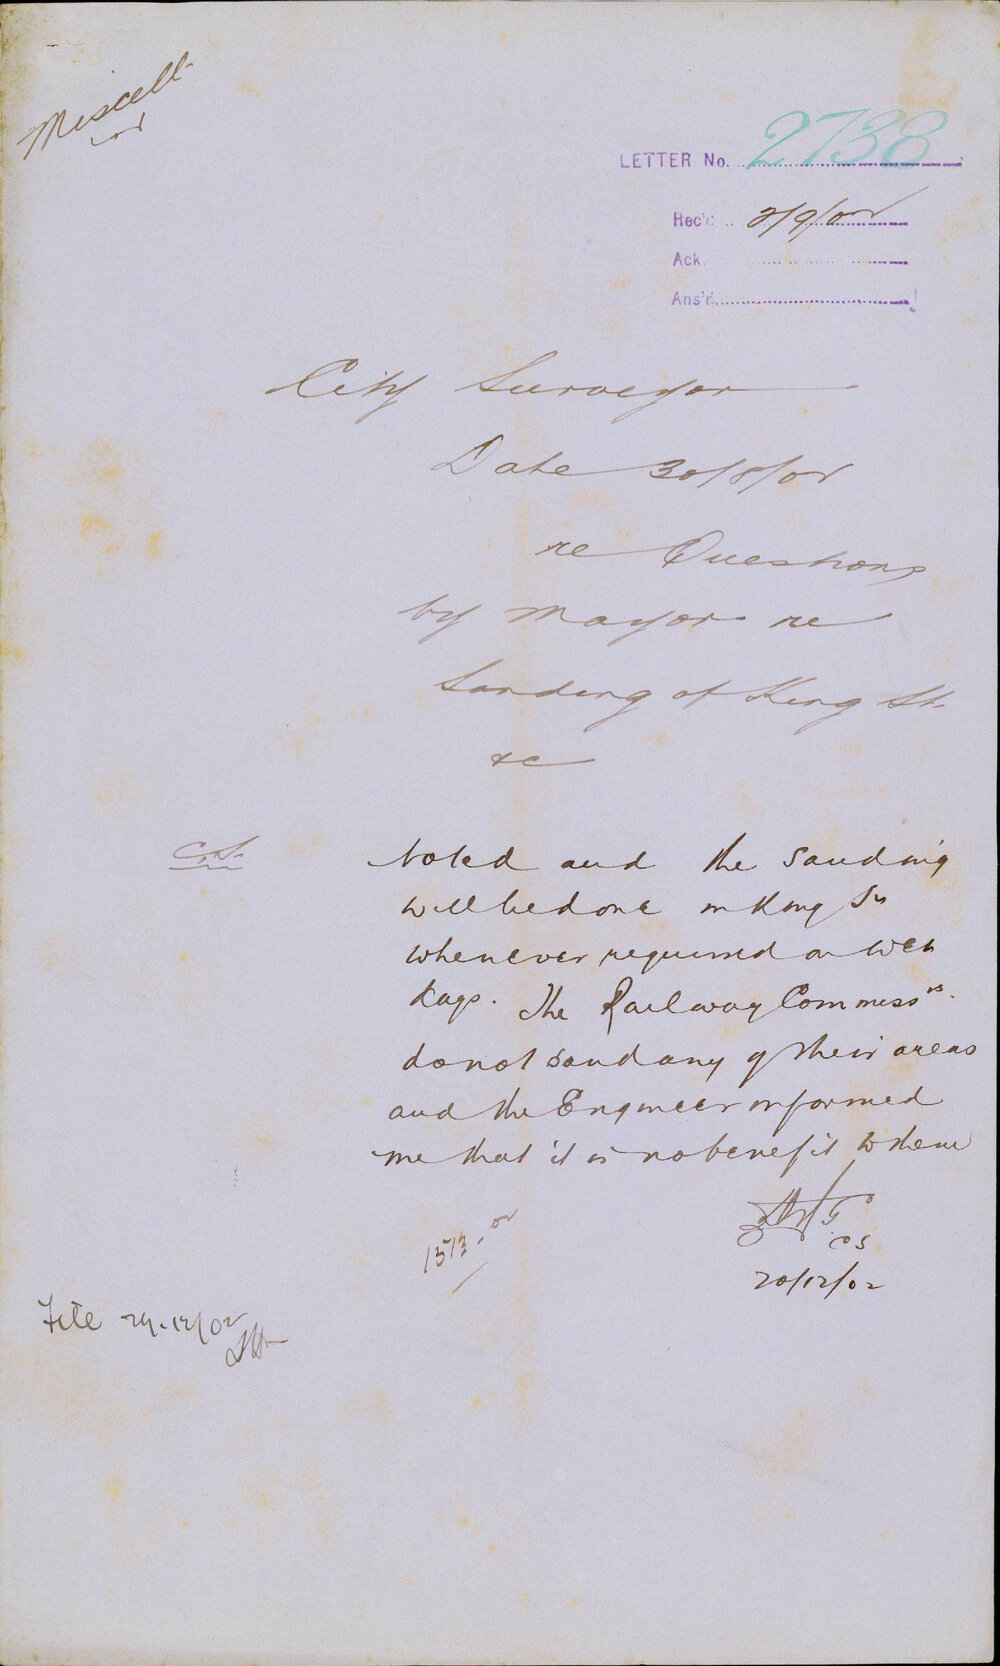 Miscell.
LETTER No. 2738
Rec'd 2/9/02
Ack.
Ans'd
City Surveyor
Date 30/8/02
re Questions
by Mayor re
Sanding of King St.
&c
C.S. Noted and the sanding
will be done in King St
whenever required on wet
days. The Railway Commissrs.
do not sand any of their areas
and the Engineer informed
me that it is no benefit to them
CS
20/12/02
1513-02
File 24.12/02